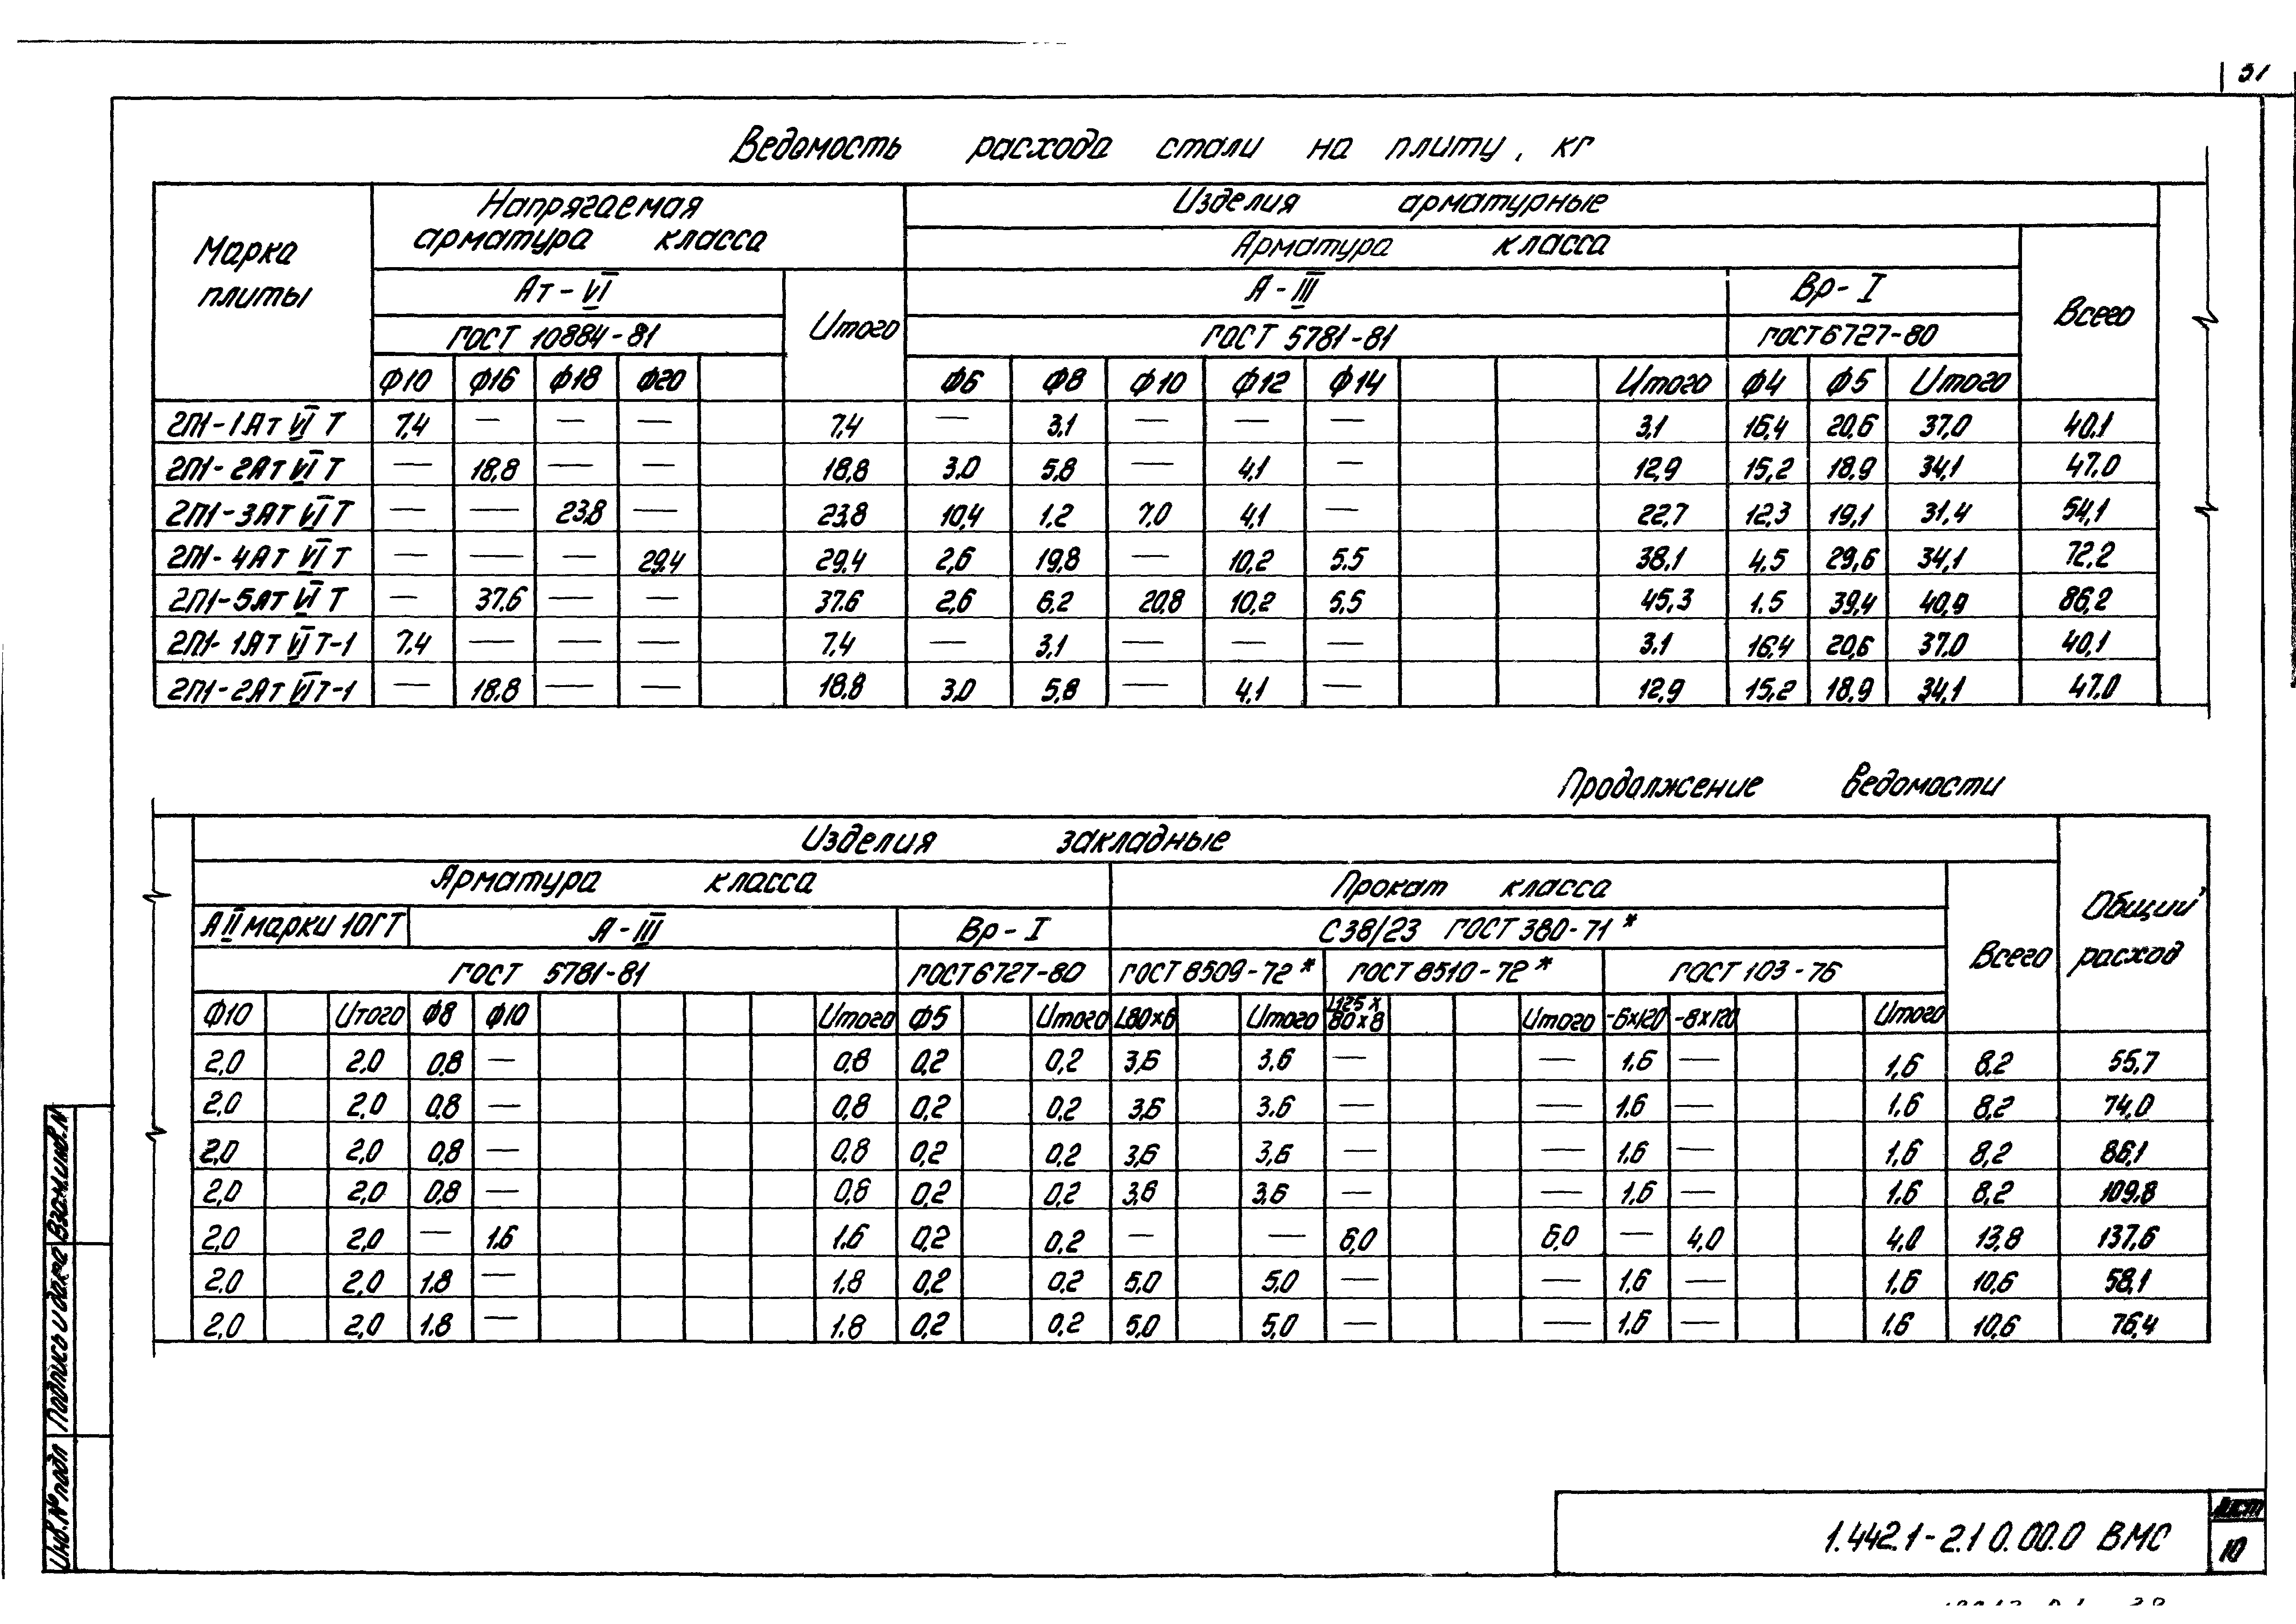 51
Ведомость расхода стали на плиту, кг
Марка плиты
Напрягаемая арматура класса
Изделия арматурные
Арматура класса
Ат-VI Итого А-III Вр-I Всего
ГОСТ 10884-81 ГОСТ 5781-81 ГОСТ 6727-80
Ф10 Ф16 Ф18 Ф20 Ф6 Ф8 Ф10 Ф12 Ф14 Итого Ф4 Ф5 Итого
2П1-1Ат VI Т 7,4 — — — 7,4 — 3,1 — — — 3,1 16,4 20,6 37,0 40,1
2П1-2Ат VI Т — 18,8 — — 18,8 3,0 5,8 — 4,1 — 12,9 15,2 18,9 34,1 47,0
2П1-3Ат VI Т — — 23,8 — 23,8 10,4 1,2 7,0 4,1 — 22,7 12,3 19,1 31,4 54,1
2П1-4Ат VI Т — — — 29,4 29,4 2,6 19,8 — 10,2 5,5 38,1 4,5 29,6 34,1 72,2
2П1-5Ат VI Т — 37,6 — — 37,6 2,6 6,2 20,8 10,2 5,5 45,3 1,5 39,4 40,9 86,2
2П1-1Ат VI Т-1 7,4 — — — 7,4 — 3,1 — — — 3,1 16,4 20,6 37,0 40,1
2П1-2Ат VI Т-1 — 18,8 — — 18,8 3,0 5,8 — 4,1 — 12,9 15,2 18,9 34,1 47,0
Продолжение ведомости
Изделия закладные
Арматура класса Прокат класса Всего Общий расход
А II марки 10ГТ А-III Вр-I С38/23 ГОСТ 380-71*
ГОСТ 5781-81 ГОСТ 6727-80 ГОСТ 8509-72* ГОСТ 8510-72* ГОСТ 103-76
Ф10 Итого Ф8 Ф10 Итого Ф5 Итого L80х6 Итого L125х80х8 Итого -6х120 -8х120 Итого
2,0 2,0 0,8 — 0,8 0,2 0,2 3,6 3,6 — — 1,6 — 1,6 8,2 55,7
2,0 2,0 0,8 — 0,8 0,2 0,2 3,6 3,6 — — 1,6 — 1,6 8,2 74,0
2,0 2,0 0,8 — 0,8 0,2 0,2 3,6 3,6 — — 1,6 — 1,6 8,2 86,1
2,0 2,0 0,8 — 0,8 0,2 0,2 3,6 3,6 — — 1,6 — 1,6 8,2 109,8
2,0 2,0 — 1,6 1,6 0,2 0,2 — — 6,0 6,0 — 4,0 4,0 13,8 137,6
2,0 2,0 1,8 — 1,8 0,2 0,2 5,0 5,0 — — 1,6 — 1,6 10,6 58,1
2,0 2,0 1,8 — 1,8 0,2 0,2 5,0 5,0 — — 1,6 — 1,6 10,6 76,4
Инв.№ подл Подпись и дата Взам.инв.N
1.442.1-2.1 0.00.0 ВМС
Лист
10